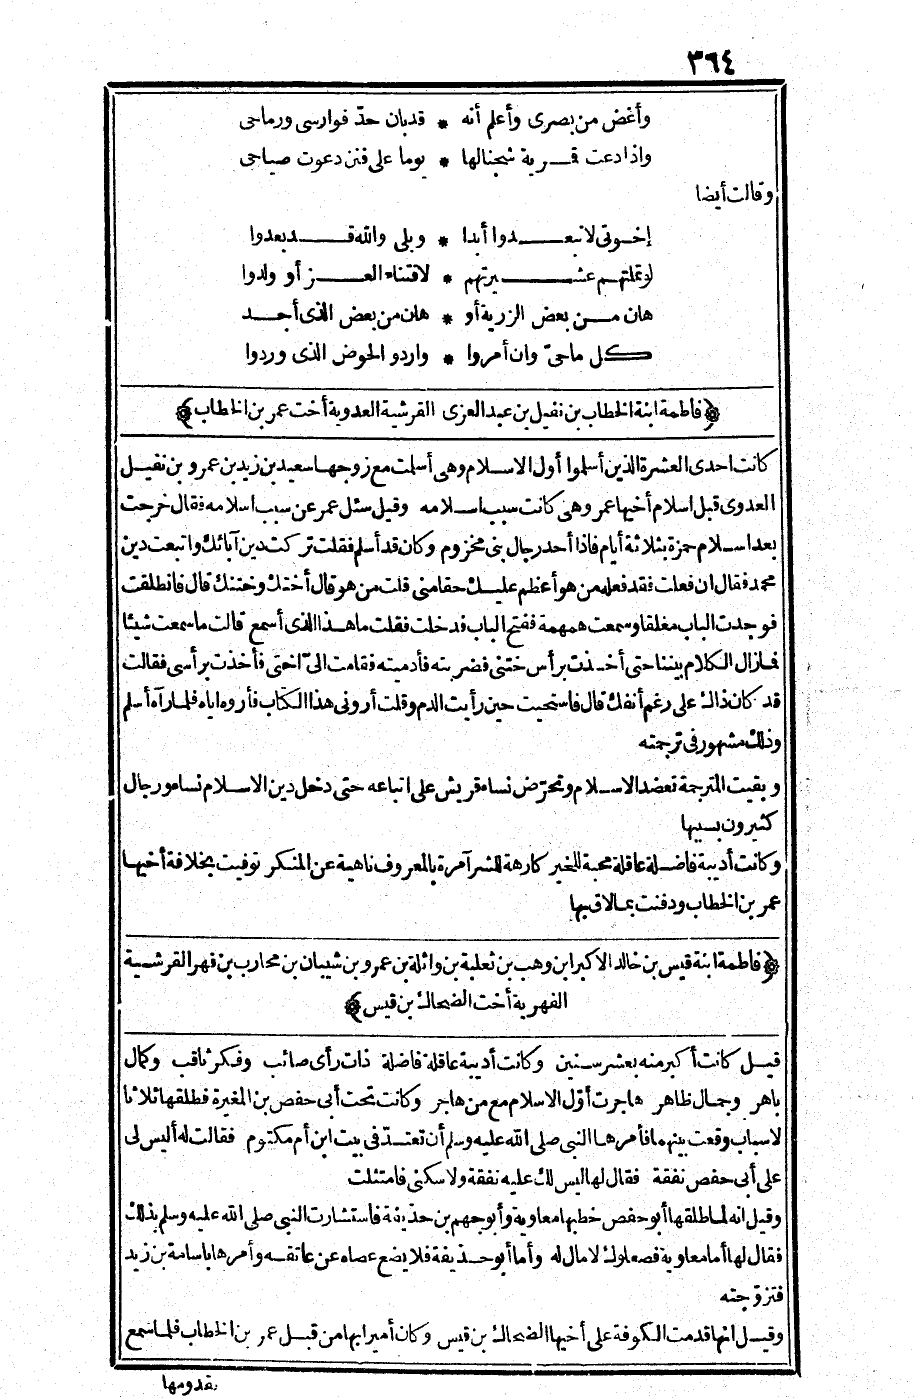 ٣٦٤
وأغض من بصرى وأعلم أنه * قد بان حدّ فوارسى ورماحى
واذا دعت قـــرية شجنا لها * يوما على فنن دعوت صباحى
وقالت أيضا
إخـوتى لا تبعـــدوا أبدا * وبلى والله قـــد بعدوا
لو تملتهم عشـــيرتهم * لاقتناء العـــز أو ولدوا
هان مـــن بعض الرزية أو * هان من بعض الذى أجـــد
كـــل ما حىّ وان أمروا * واردو الحوض الذى وردوا
﴿فاطمة ابنة الخطاب بن نفيل بن عبد العزى القرشية العدوية أخت عمر بن الخطاب﴾
كانت احدى العشرة الذين أسلموا أول الاسلام وهى أسلمت مع زوجها سعيد بن زيد بن عمرو بن نفيـل
العدوى قبل اسلام أخيها عمر وهى كانت سبب اسلامه وقيل سئل عمر عن سبب اسلامه فقال خرجت
بعد اسلام حمزة بثلاثة أيام فاذا أحد رجال بنى مخزوم وكان قد أسلم فقلت تركت دين آبائك واتبعت دين
محمد فقال ان فعلت فقد فعله من هو أعظم عليك حقا منى قلت من هو قال أختك وختنك قال فانطلقت
فوجدت الباب مغلقا وسمعت همهمة ففتح الباب فدخلت فقلت ما هذا الذى أسمع قالت ما سمعت شيئا
فمازال الكلام بيننا حتى أخذت برأس ختنى فضربته فأدميته فقامت الىّ اختى فأخذت برأسى فقالت
قد كان ذلك على رغم أنفك قال فاستحيت حين رأيت الدم وقلت أرونى هذا الكتاب فأروه اياه فلما رآه أسلم
وذلك مشهور فى ترجمته
وبقيت المترجمة تعضد الاسلام وتحرّض نساء قريش على اتباعه حتى دخل دين الاسلام نساء ورجال
كثيرون بسببها
وكانت أديبة فاضلة عاقلة محبة للخير كارهة للشر آمرة بالمعروف ناهية عن المنكر توفيت بخلافة أخيها
عمر بن الخطاب ودفنت بما لاق بها
﴿فاطمة ابنة قيس بن خالد الاكبر ابن وهب بن ثعلبة بن وائلة بن عمرو بن شيبان بن محارب بن فهر القرشية
الفهرية أخت الضحاك بن قيس﴾
قيـل كانت أكبر منه بعشر سنين وكانت أديبة عاقلة فاضلة ذات رأى صائب وفكر ثاقب وكمال
باهر وجمال ظاهر هاجرت أوّل الاسلام مع من هاجر وكانت تحت أبى حفص بن المغيرة فطلقها ثلاثا
لاسباب وقعت بينهما فأمرها النبى صلى الله عليه وسلم أن تعتدّ فى بيت ابن أم مكتوم فقالت له أليس لى
على أبى حفص نفقة فقال لها ليس لك عليه نفقة ولا سكنى فامتثلت
وقيل انه لما طلقها أبو حفص خطبها معاوية وأبو جهم بن حذيفة فاستشارت النبى صلى الله عليه وسلم بذلك
فقال لها أما معاوية فصعلوك لا مال له وأما أبو حذيفة فلا يضع عصاه عن عاتقه وأمرها باسامة بن زيد
فتزوّجته
وقيـل انها قدمت الكوفة على أخيها الضحاك بن قيس وكان أميرا بها من قبل عمر بن الخطاب فلما سمع
بقدومها